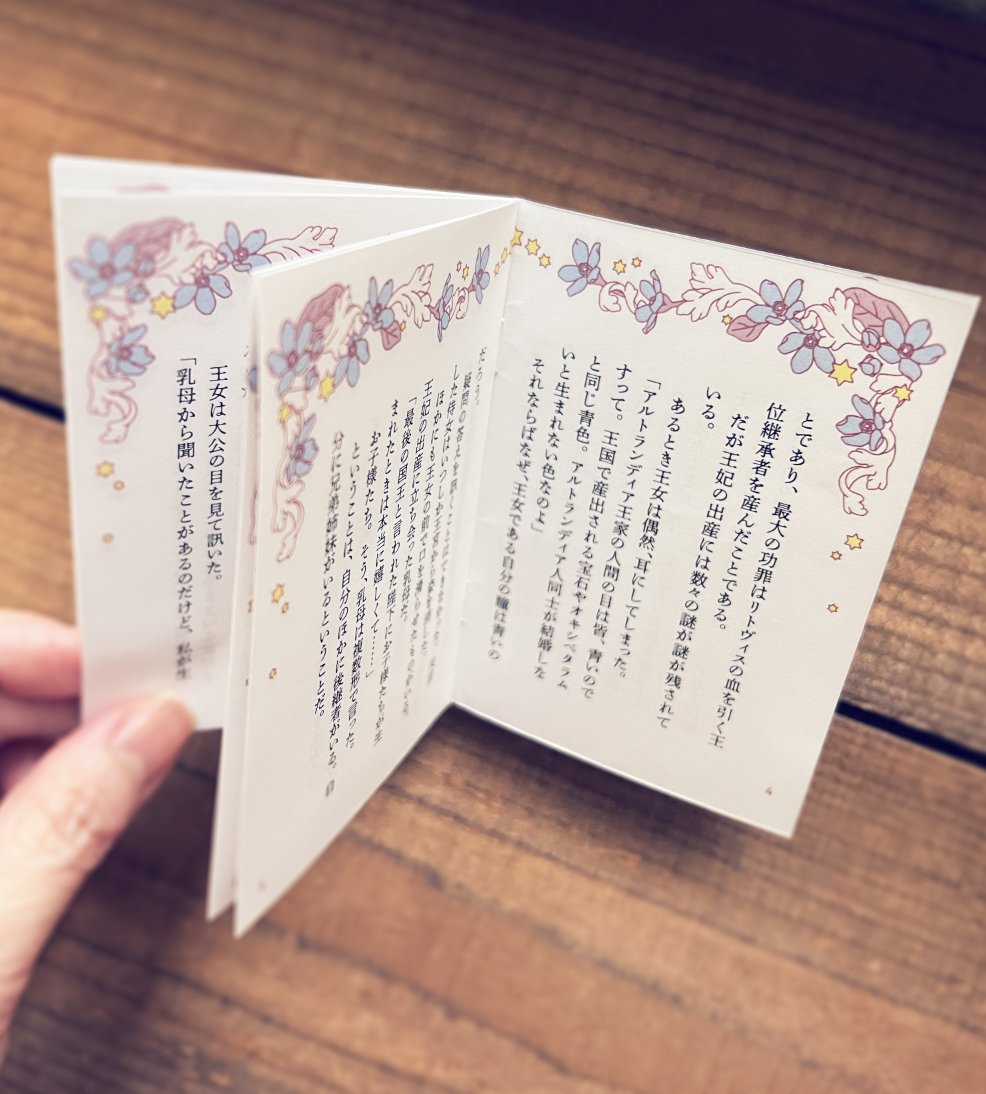 とであり、最大の功罪はリトヴィスの血を引く王
位継承者を産んだことである。
だが王妃の出産には数々の謎が謎が残されて
いる。
あるとき王女は偶然、耳にしてしまった。
「アルトランディア王家の人間の目は皆、青いので
すって。王国で産出される宝石やオキシペタラム
と同じ青色。アルトランディア人同士が結婚しな
いと生まれない色なのよ」
それならばなぜ、王女である自分の瞳は青いの
4
だろう。
疑問の答えを訊くことはできなかった。
した侍女はいつしか王宮から姿を消した。
ほかにも王女の前で口を滑らせたものがいる。
王妃の出産に立ち会った乳母だ。
「最後の国王と言われた陛下にお子様たちが生
まれたときは本当に嬉しくて……」
お子様たち。そう、乳母は複数形で言った。
ということは、自分のほかに後継者がいる。自
分に兄弟姉妹がいるということだ。
王女は大公の目を見て訊いた。
「乳母から聞いたことがあるのだけど、私が生